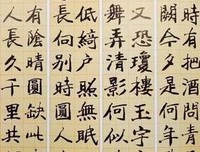 時有把酒問青
闕今夕是何年
又恐瓊樓玉宇
舞弄清影何似
低綺戶照無眠
長向別時圓人
有陰晴圓缺此
人長久千里共